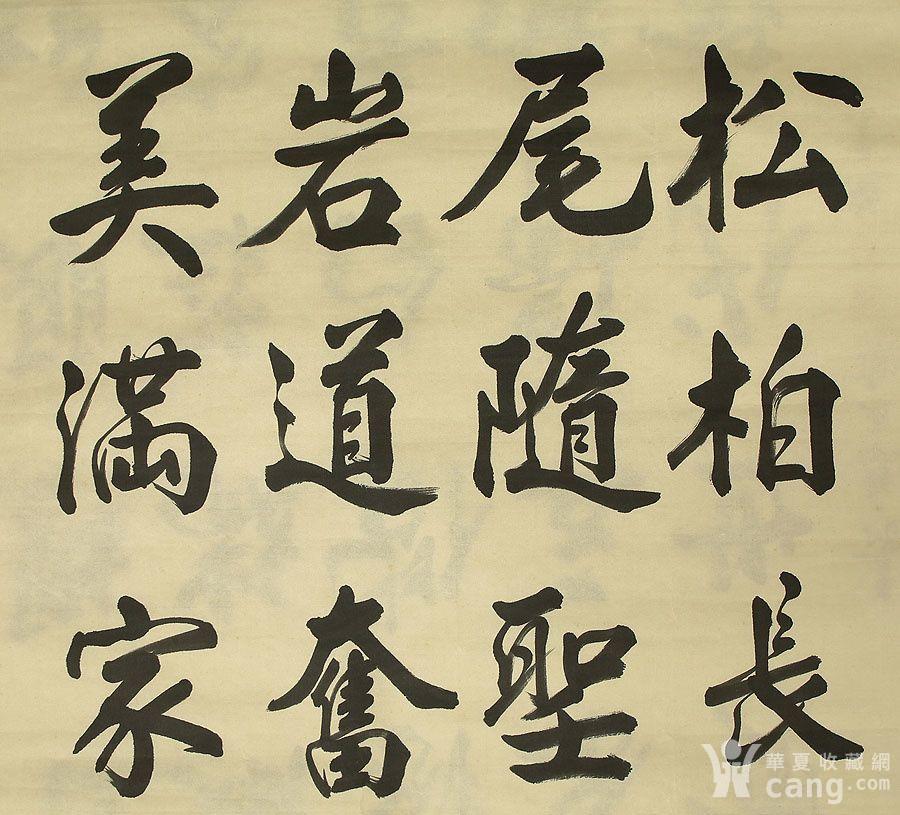 松柏長
尾隨聖
岩道奮
美滿家
華夏收藏網
cang.com